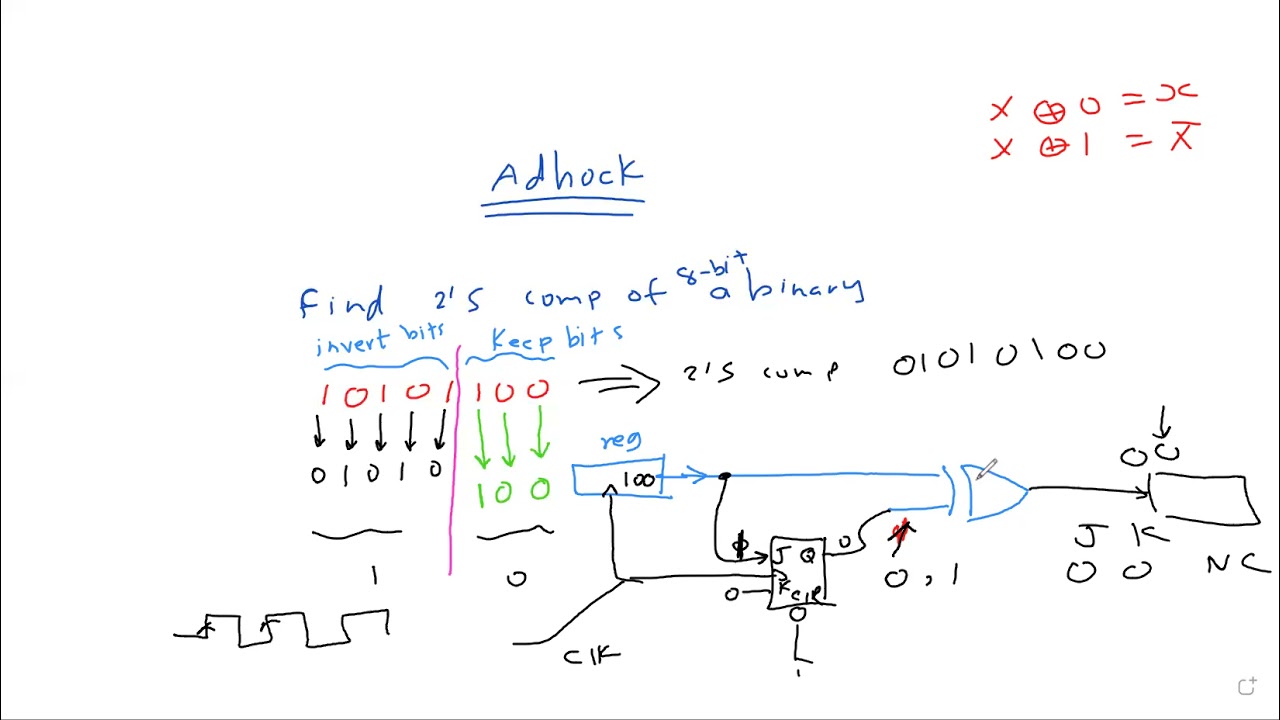 x ⊕ 0 = x
x ⊕ 1 = x̅
Adhock
8-bit
Find 2'S comp of a binary
invert bits Keep bits
1 0 1 0 1 1 0 0 2'S comp 0 1 0 1 0 1 0 0
reg
0 1 0 1 0 1 0 0 100 0 0
J Q 0 J K
0 K CLR 0 , 1 0 0 NC
1 0
ClK
1